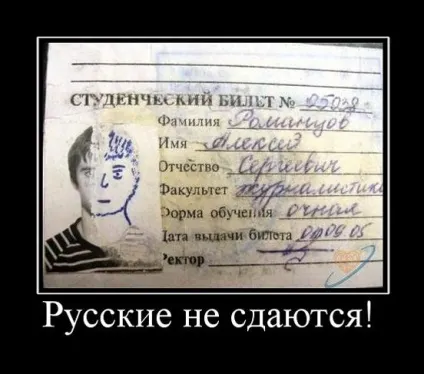 СТУДЕНЧЕСКИЙ БИЛЕТ № 25039
Фамилия Романцов
Имя Алексей
Отчество Сергеевич
Факультет журналистики
Форма обучения очная
Дата выдачи билета 09.09.05
Ректор
Русские не сдаются!